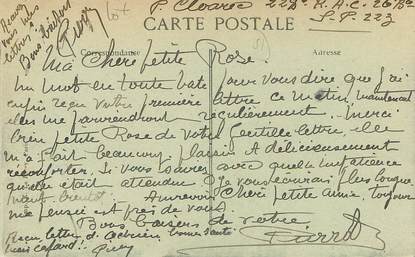 P. Cloarec 228e R.A.C. 26 Bie
S.P. 223
CARTE POSTALE
Correspondance
Adresse
Ma Chère petite Rose.
Un mot en toute hate pour vous dire que j'ai
enfin reçu votre première lettre ce matin, maintenant
elles me parviendront régulièrement. Merci
bien petite Rose de votre gentille lettre, elle
m'a fait beaucoup plaisir. A délicieusement
réconforter. Si vous saviez avec quelle impatience
qu'elle était attendue. Je vous écrirai plus longue
Aurevoir Chère petite Amie, toujours
ma pensée est près de vous.
Bons baisers de votre
Pierrot
Reçu lettre d' bonne santé
cafard!